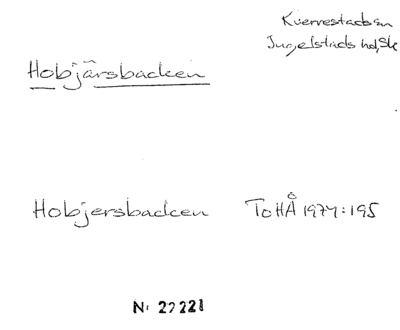 Kverrestads sn
Ingelstads hd, Sk
Hobjärsbacken
Hobjersbacken ToHÅ 1974:195
Nr 22221